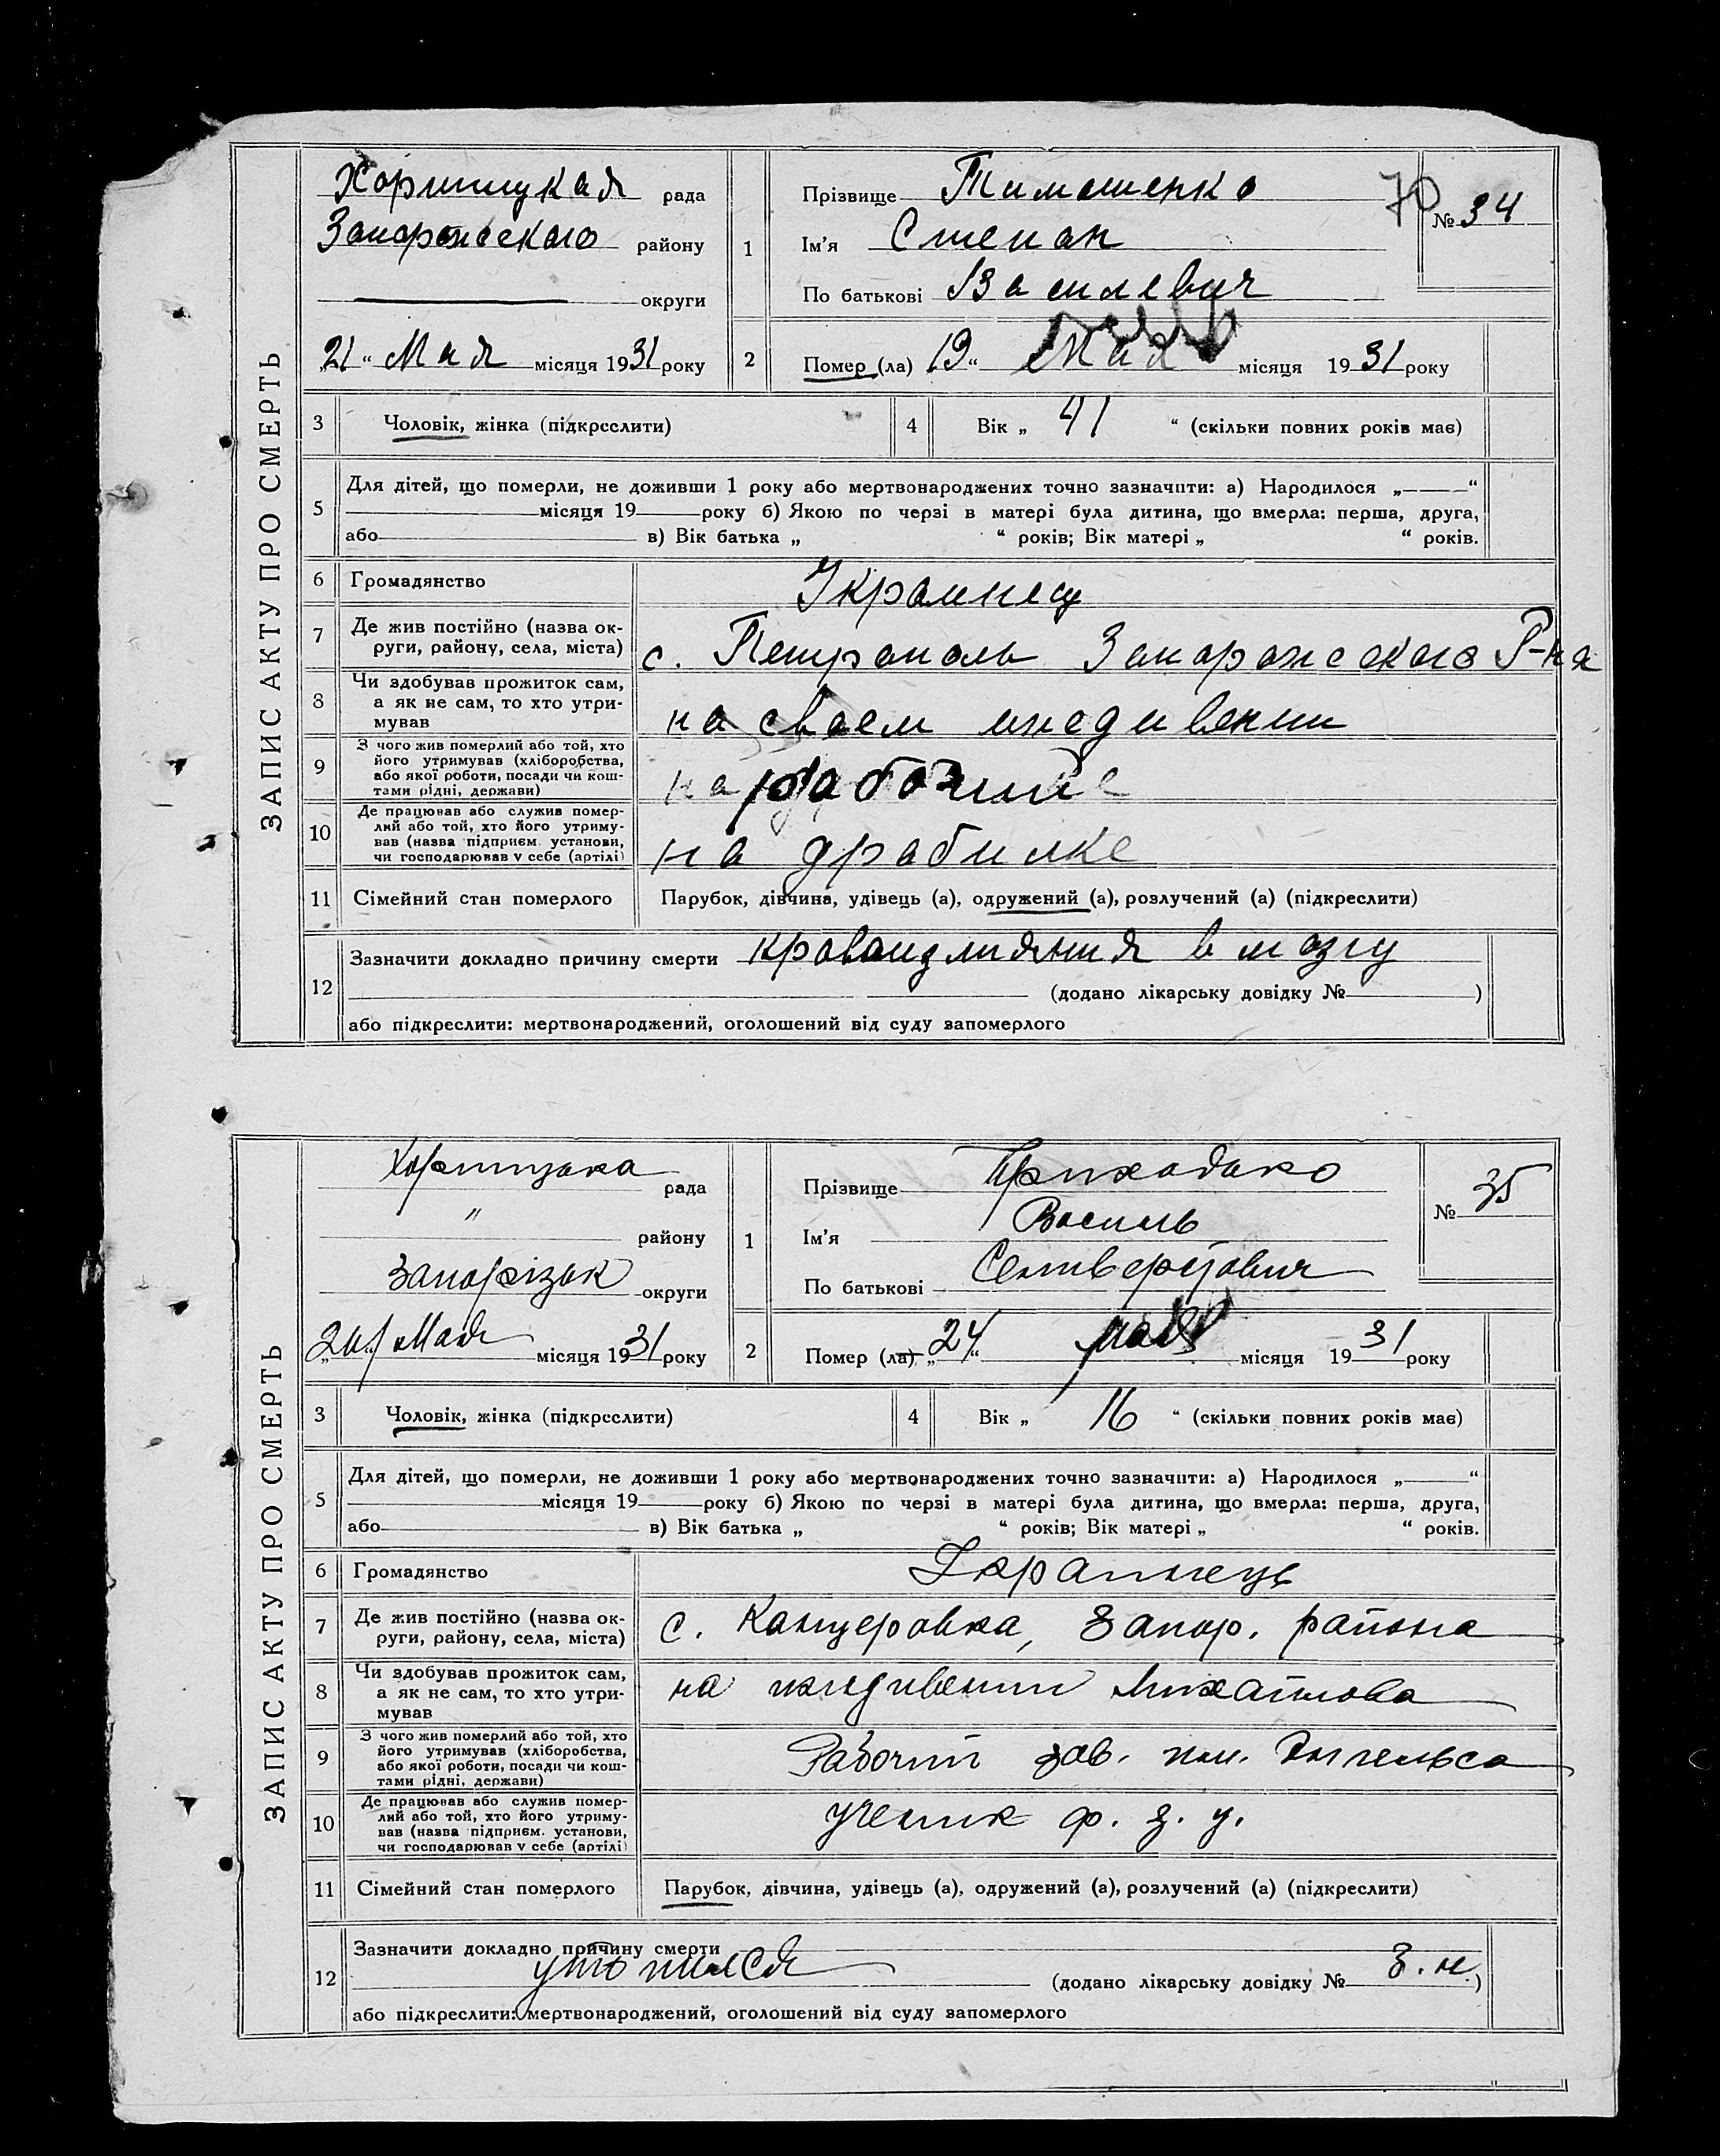 ЗАПИС АКТУ ПРО СМЕРТЬ
Хортицкая рада
Запорожского району
округи
„21“ Мая місяця 1931 року
1
Прізвище Тимошенко
Ім’я Степан
По батькові Василевич
70
№ 34
2
Помер (ла) „19“ Мая місяця 1931 року
3
Чоловік, жінка (підкреслити)
4
Вік „ 41 “ (скільки повних років має)
5
Для дітей, що померли, не доживши 1 року або мертвонароджених точно зазначити: а) Народилося „——“
місяця 19 року б) Якою по черзі в матері була дитина, що вмерла: перша, друга,
або в) Вік батька „ “ років; Вік матері „ “ років.
6
Громадянство
Украинец
7
Де жив постійно (назва ок-
руги, району, села, міста)
с. Петрополь Запорожского Р-на
8
Чи здобував прожиток сам,
а як не сам, то хто утри-
мував
на своем иждивении
9
З чого жив померлий або той, хто
його утримував (хліборобства,
або якої роботи, посади чи кош-
тами рідні, держави)
рабочий
10
Де працював або служив помер-
лий або той, хто його утриму-
вав (назва підприєм. установи,
чи господарював у себе (артілі)
на драбилке
11
Сімейний стан померлого
Парубок, дівчина, удівець (а), одружений (а), розлучений (а) (підкреслити)
12
Зазначити докладно причину смерти кровоизлияния в мозгу
(додано лікарську довідку № )
або підкреслити: мертвонароджений, оголошений від суду запомерлого
ЗАПИС АКТУ ПРО СМЕРТЬ
Хортицька рада
〃 району
Запорізьк округи
Мая місяця 1931 року
1
Прізвище Приходько
Ім’я Василь
По батькові Селиверстович
№ 35
2
Помер (ла) „24“ мая місяця 1931 року
3
Чоловік, жінка (підкреслити)
4
Вік „ 16 “ (скільки повних років має)
5
Для дітей, що померли, не доживши 1 року або мертвонароджених точно зазначити: а) Народилося „——“
місяця 19 року б) Якою по черзі в матері була дитина, що вмерла: перша, друга,
або в) Вік батька „ “ років; Вік матері „ “ років.
6
Громадянство
Українець
7
Де жив постійно (назва ок-
руги, району, села, міста)
с. Канцеровка, Запор. района
8
Чи здобував прожиток сам,
а як не сам, то хто утри-
мував
на иждивении Михайлова
9
З чого жив померлий або той, хто
його утримував (хліборобства,
або якої роботи, посади чи кош-
тами рідні, держави)
Рабочий зав. им. Энгельса
10
Де працював або служив помер-
лий або той, хто його утриму-
вав (назва підприєм. установи,
чи господарював у себе (артілі)
ученик ф. з. у.
11
Сімейний стан померлого
Парубок, дівчина, удівець (а), одружений (а), розлучений (а) (підкреслити)
12
Зазначити докладно причину смерти
утопился
(додано лікарську довідку № З. н.)
або підкреслити: мертвонароджений, оголошений від суду запомерлого